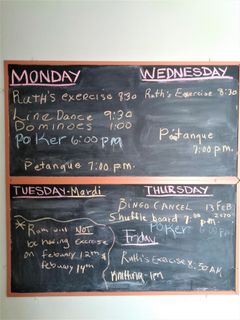 MONDAY
Ruth's exercise 8:30
Line Dance 9:30
Dominoes 1:00
Poker 6:00 pm
Petanque 7:00 p.m.
WEDNESDAY
Ruth's Exercise 8:30
Pétanque
7:00 p.m.
TUESDAY-Mardi
* Ruth will NOT
be having exercise
on Febuary 12th &
Febuary 14th
THURSDAY
BINGO CANCEL 13 FEB
2020
Shuffle board 7:00 pm
POKER 6:00 pm
Friday
Ruth's Exercise 8:30 AM
Knitting-1pm